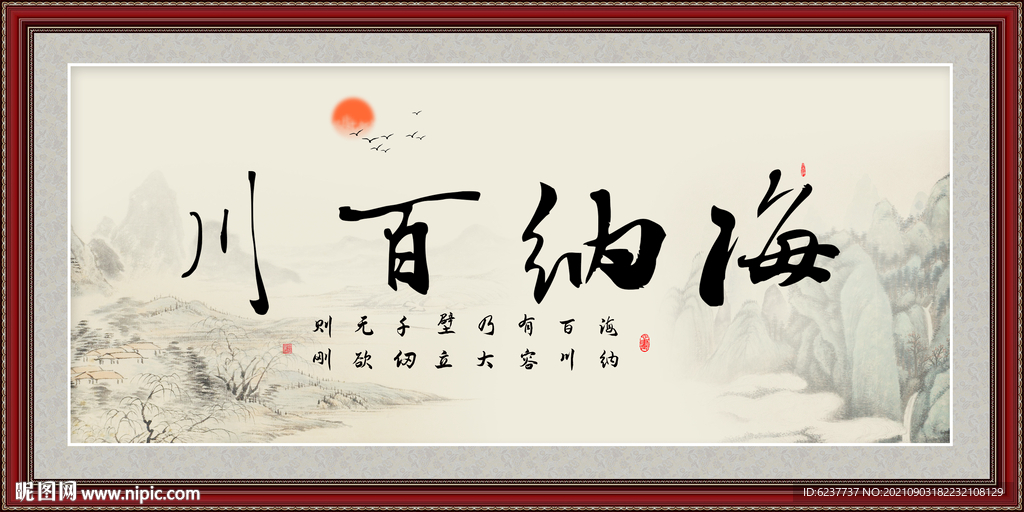 海纳百川
海纳
百川
有容
乃大
壁立
千仞
无欲
则刚
昵图网 www.nipic.com
ID:6237737 NO:20210903182232108129